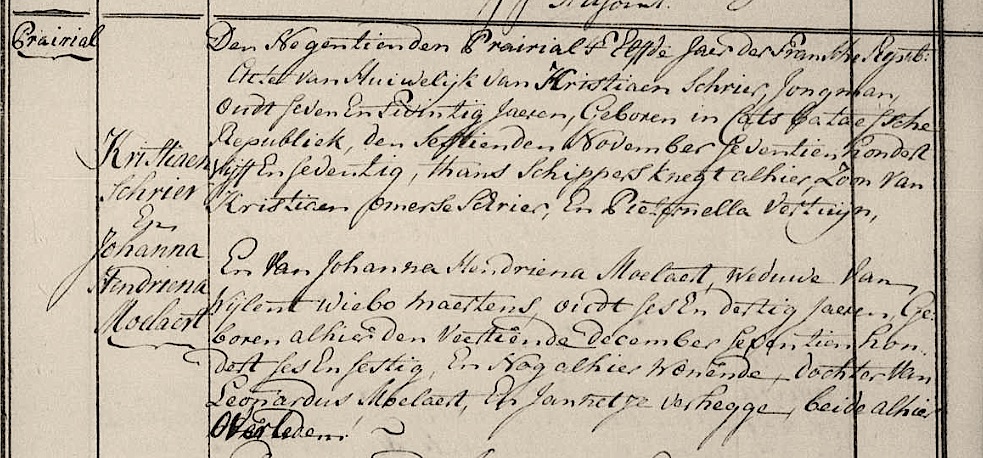 Prairial
Den Negentienden Prairial 't Elffde Jaer der Fransche Repub:
Acte van Huiwelijk van Kristiaen Schrier, Jongman,
Oudt seven En twintig Jaeren, Geboren in Cats Bataefsche
Republiek, den sestienden November seventien hondert
vijff En seventig, thans Schippers knegt alhier, Zoon van
Kristiaen Omerse Schrier, En Pieternella Vertuijn,
Kristiaen
Schrier
En
Johanna
Hendriena
Moelaert
En Van Johanna Hendriena Moelaert, weduwe Van
Wijlent Wiebo Maertens, oudt ses En dertig Jaeren, Ge-
boren alhier den Veertiende december seventien hon-
dert ses En sestig, En Nog alhier wonende, dochter Van
Leonardus Moelaert, En Jannetje verhegge, beide alhier
Overleden,